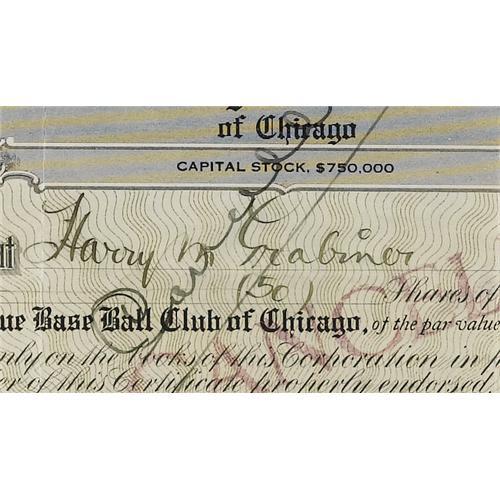 of Chicago
CAPITAL STOCK, $750,000
Harry M Grabiner
(50) Shares of
ue Base Ball Club of Chicago, of the par value
nly on the books of this Corporation in p
er of this Certificate properly endorsed,
Cancelled
CANCEL